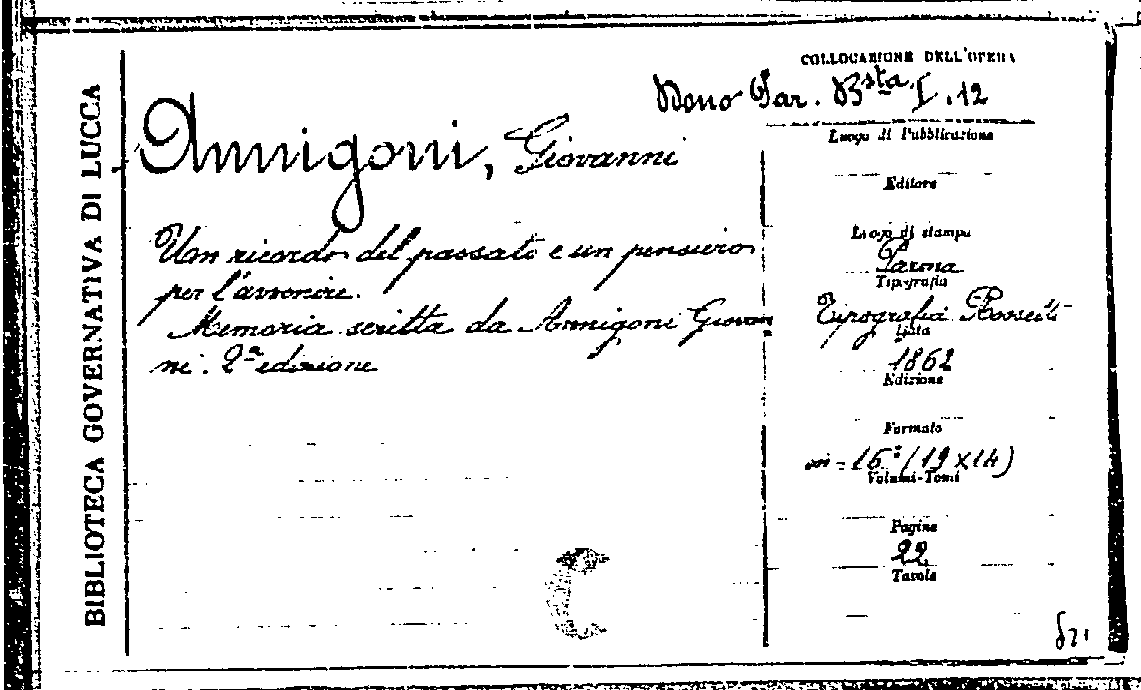 BIBLIOTECA GOVERNATIVA DI LUCCA
Annigoni, Giovanni
Un ricordo del passato e un pensiero
per l'avvenire.
Memoria scritta da Annigoni Giovan
ni. 2ª edizione
COLLOCAZIONE DELL'OPERA
Bsta I. 12
Luogo di Pubblicazione
Editore
Luogo di stampa
Parma
Tipografia
Tipografia Rossetti
Data
1862
Edizione
Formato
in-16° (19 x 14)
Volumi-Tomi
Pagine
22
Tavole